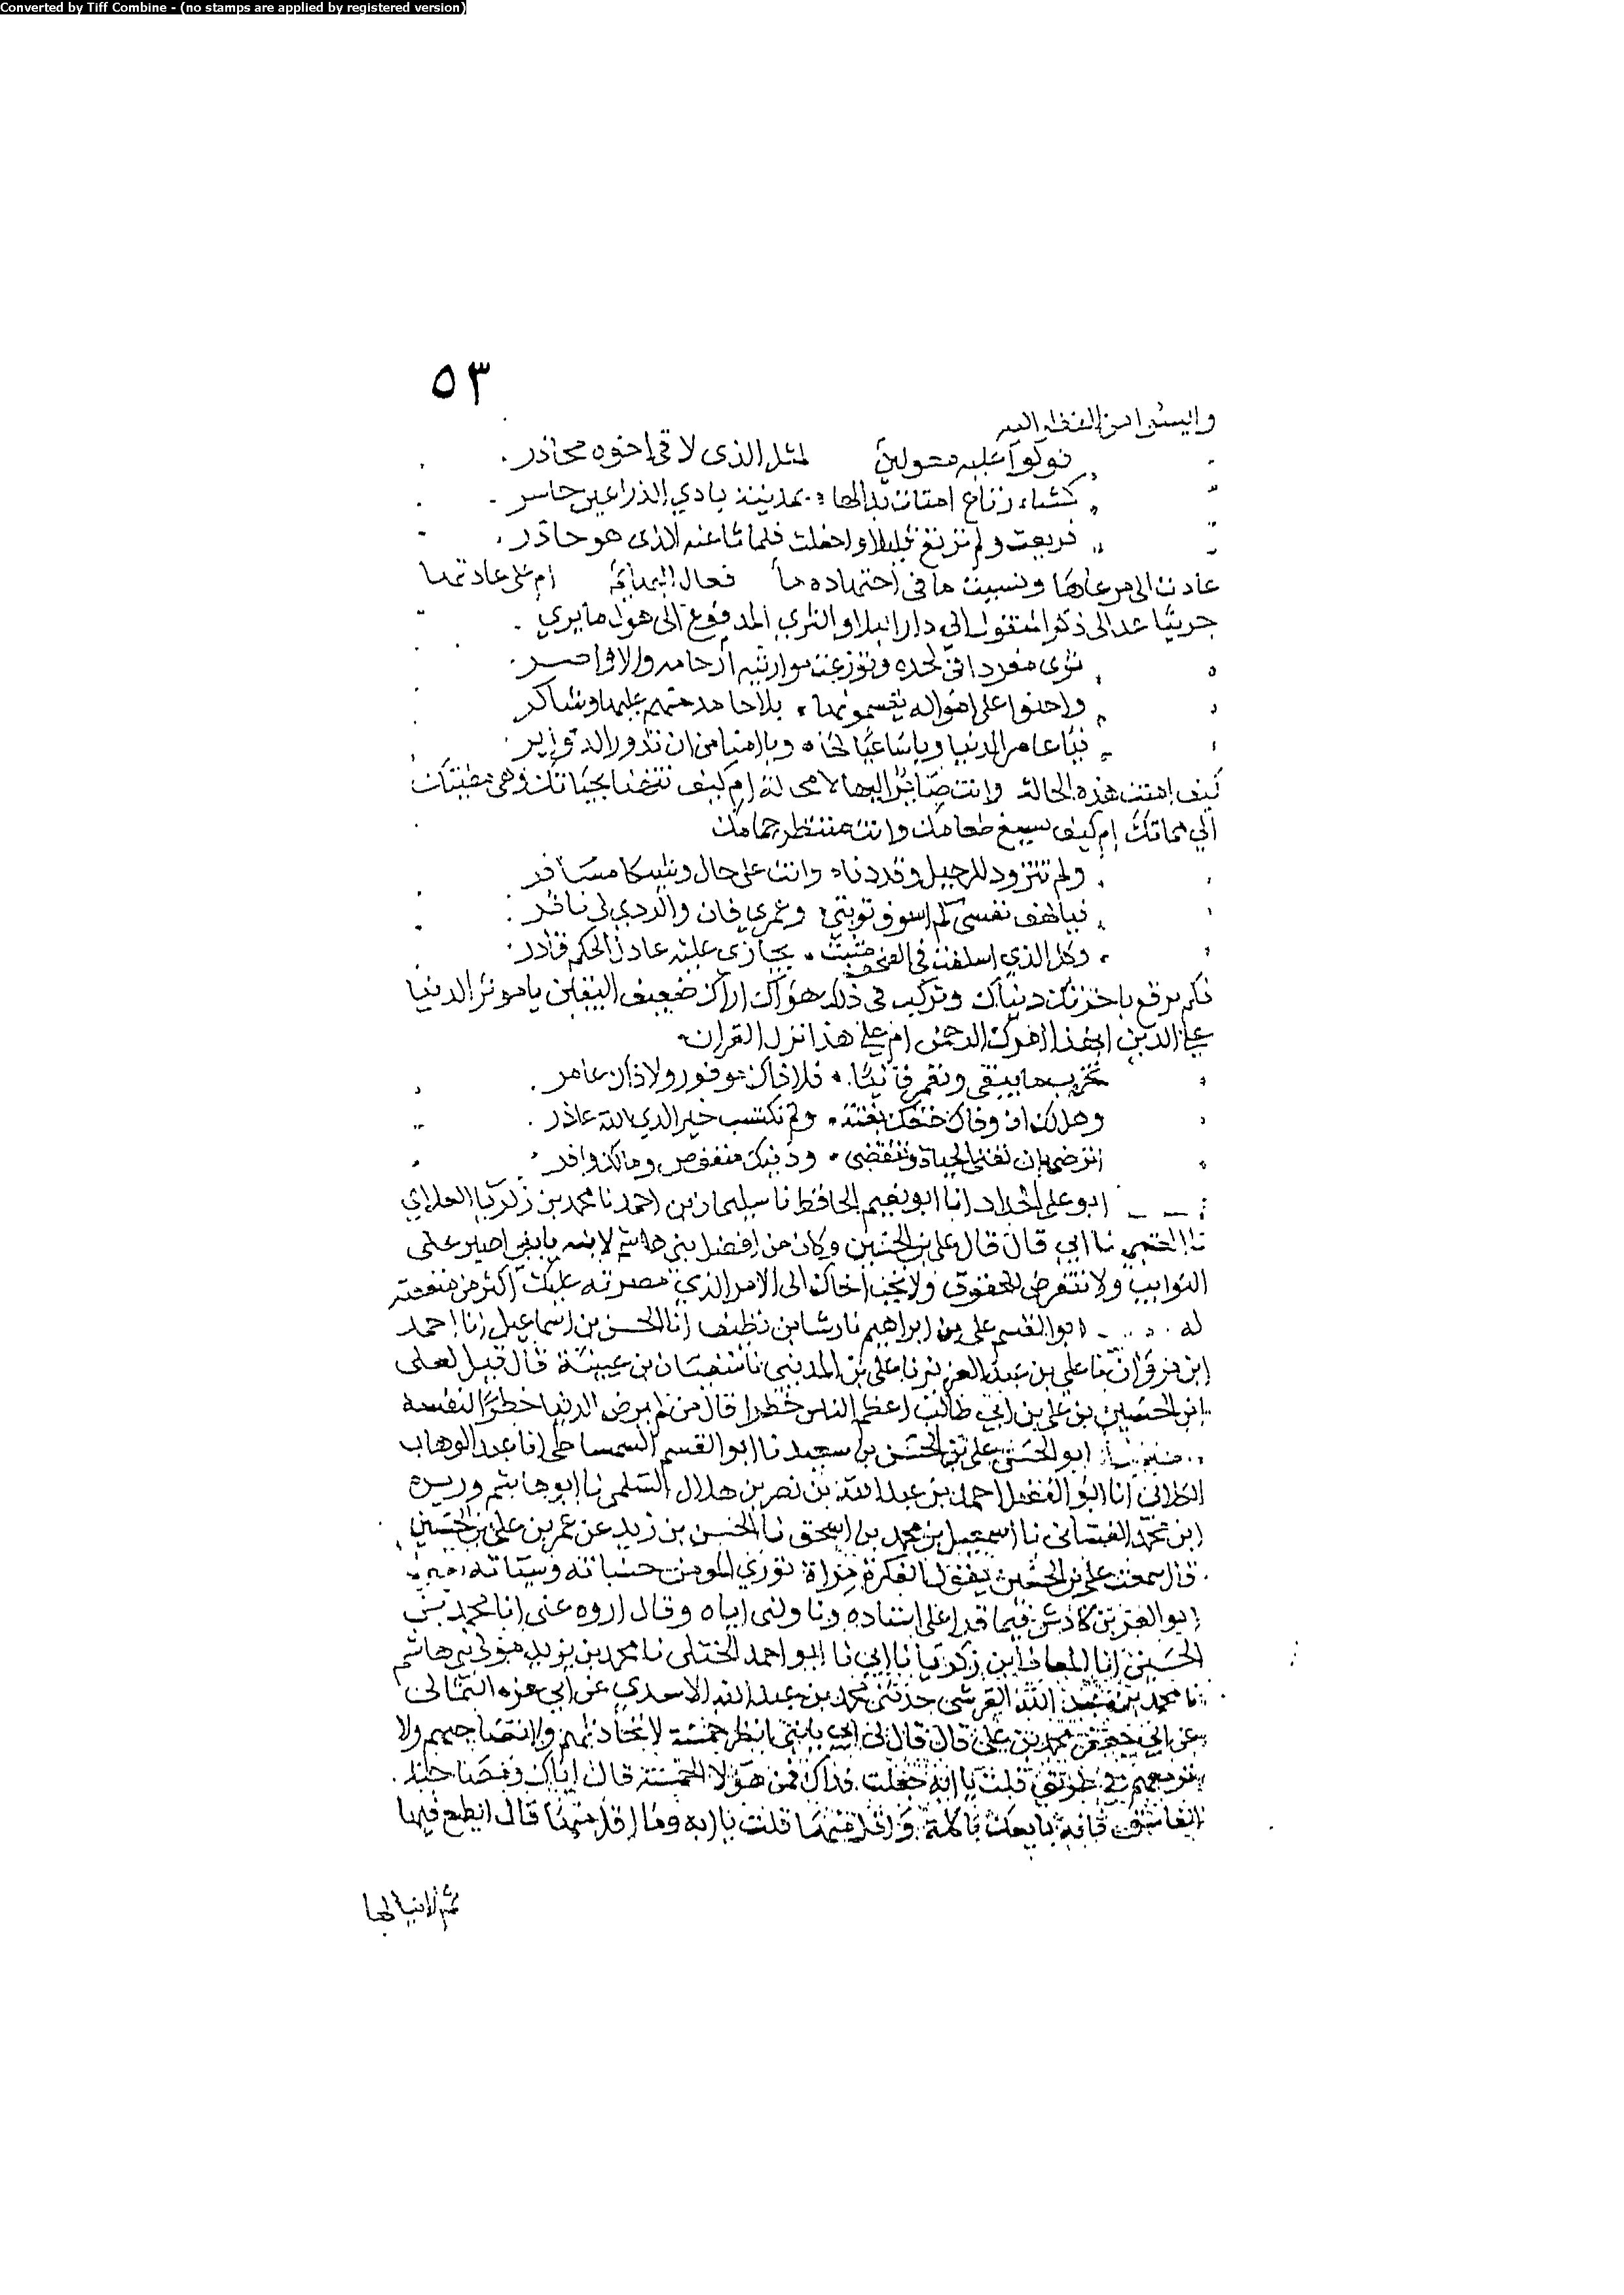 Converted by Tiff Combine - (no stamps are applied by registered version)
٥٣
وايسوا من النظر اليه
فولوا عليه معولين لمثل الذى لاقى اخوه محاذر
كشاء رتاع امنات بدالها بمدينة بادي الذراعين حاسر
فريعت ولم ترتع قليلا واجفلت فلما نأى عنه الذى هو حاذر
عادت الى مرعاها ونسيت ما فى اختها دهاها افعال البهائم ام على عادتها
جرينا عد الى ذكر المنقول الى دار البلا والثرى المدفوع الى هول ما يرى
ثوى مفردا فى لحده وتوزعت مواريثه ارحامه والاواصر
واحنوا على امواله يقسمونها بلا حامد منهم عليها وشاكر
فيا عامر الدنيا ويا ساعيا لها ويا امنا من ان تدور الدوائر
كيف امنت هذه الحالة وانت صائر اليها لا محالة ام كيف تتهنا بحياتك وهي مطيتك
الي مماتك ام كيف تسيغ طعامك وانت منتظر حمامك
ولم تتزود للرحيل وقد دنا وانت على حال وشيكا مسافر
فيا لهف نفسى كم اسوف توبتي وعمري فان والردي لي ناظر
وكل الذي اسلفت فى الصحف مثبت يجازى عليه عادل الحكم قادر
فكم ترقع باخرتك دنياك وتركب فى ذلك هواك اراك ضعيف اليقين يا موثر الدنيا
على الدين ابهذا امرك الرحمن ام على هذا نزل القران
تخرب ما يبقى وتعمر فانيا فلا ذاك موفور ولا ذاك عامر
وهل لك ان وفاك حتفك بغتة ولم تكتسب خيرا لدي الله عاذر
اترضى بان تفنى الحياة وتنقضى ودينك منقوص ومالك وافر
ابو على الحداد انا ابو نعيم الحافظ نا سليمان بن احمد نا محمد بن زكريا الغلابي
نا العتبي نا ابي قال قال على بن الحسين وكان من افضل بني هاشم لابنه يا بني اصبر على
النوايب ولا تتعرض للحقوق ولا تجب اخاك الى الامر الذي مضرته عليك اكثر من منفعته
له ابو القسم على بن ابراهيم نا رشا بن نظيف انا الحسن بن اسماعيل انا احمد
ابن مروان نا على بن عبد العزيز نا على بن المديني نا سفيان بن عيينة قال قيل لعلى
ابن الحسين بن على بن ابي طالب من اعظم الناس خطرا قال من لم يرض الدنيا خطرا لنفسه
ابو الحسن على بن الحسن بن سعيد نا ابو القسم السمساطى انا عبد الوهاب
الكلابى انا ابو الفضل احمد بن عبد الله بن نصر بن هلال السلمى نا ابو هاشم وريزه
ابن محمد الغسانى نا اسمعيل بن محمد بن اسحق نا الحسن بن زيد عن عمر بن على بن الحسين
قال سمعت على بن الحسين يقول الفكرة مرآة توري المومن حسناته وسيئاته
ابو العز بن كادش فيما قرا على اسناده وناولنى اياه وقال اروه عنى انا محمد بن
الحسين انا المعافا ابن زكريا نا ابي نا ابو احمد الختلى نا محمد بن يزيد مولى بني هاشم
نا محمد بن عبد الله القرشى حدثني محمد بن عبد الله الاسدي عن ابي حمزه الثمالى
عن ابي جعفر محمد بن على قال قال لى ابي يا بني انظر خمسة لا تحادثهم ولا تصاحبهم ولا
ترمعهم في طريق قلت يا ابه جعلت فداك فمن هؤلا الخمسة قال اياك ومصاحبة
الفاسق فانه بايعك باكلة واقل منها قلت يا ابه وما اقل منها قال الطمع فيها
ثم لا ينالها